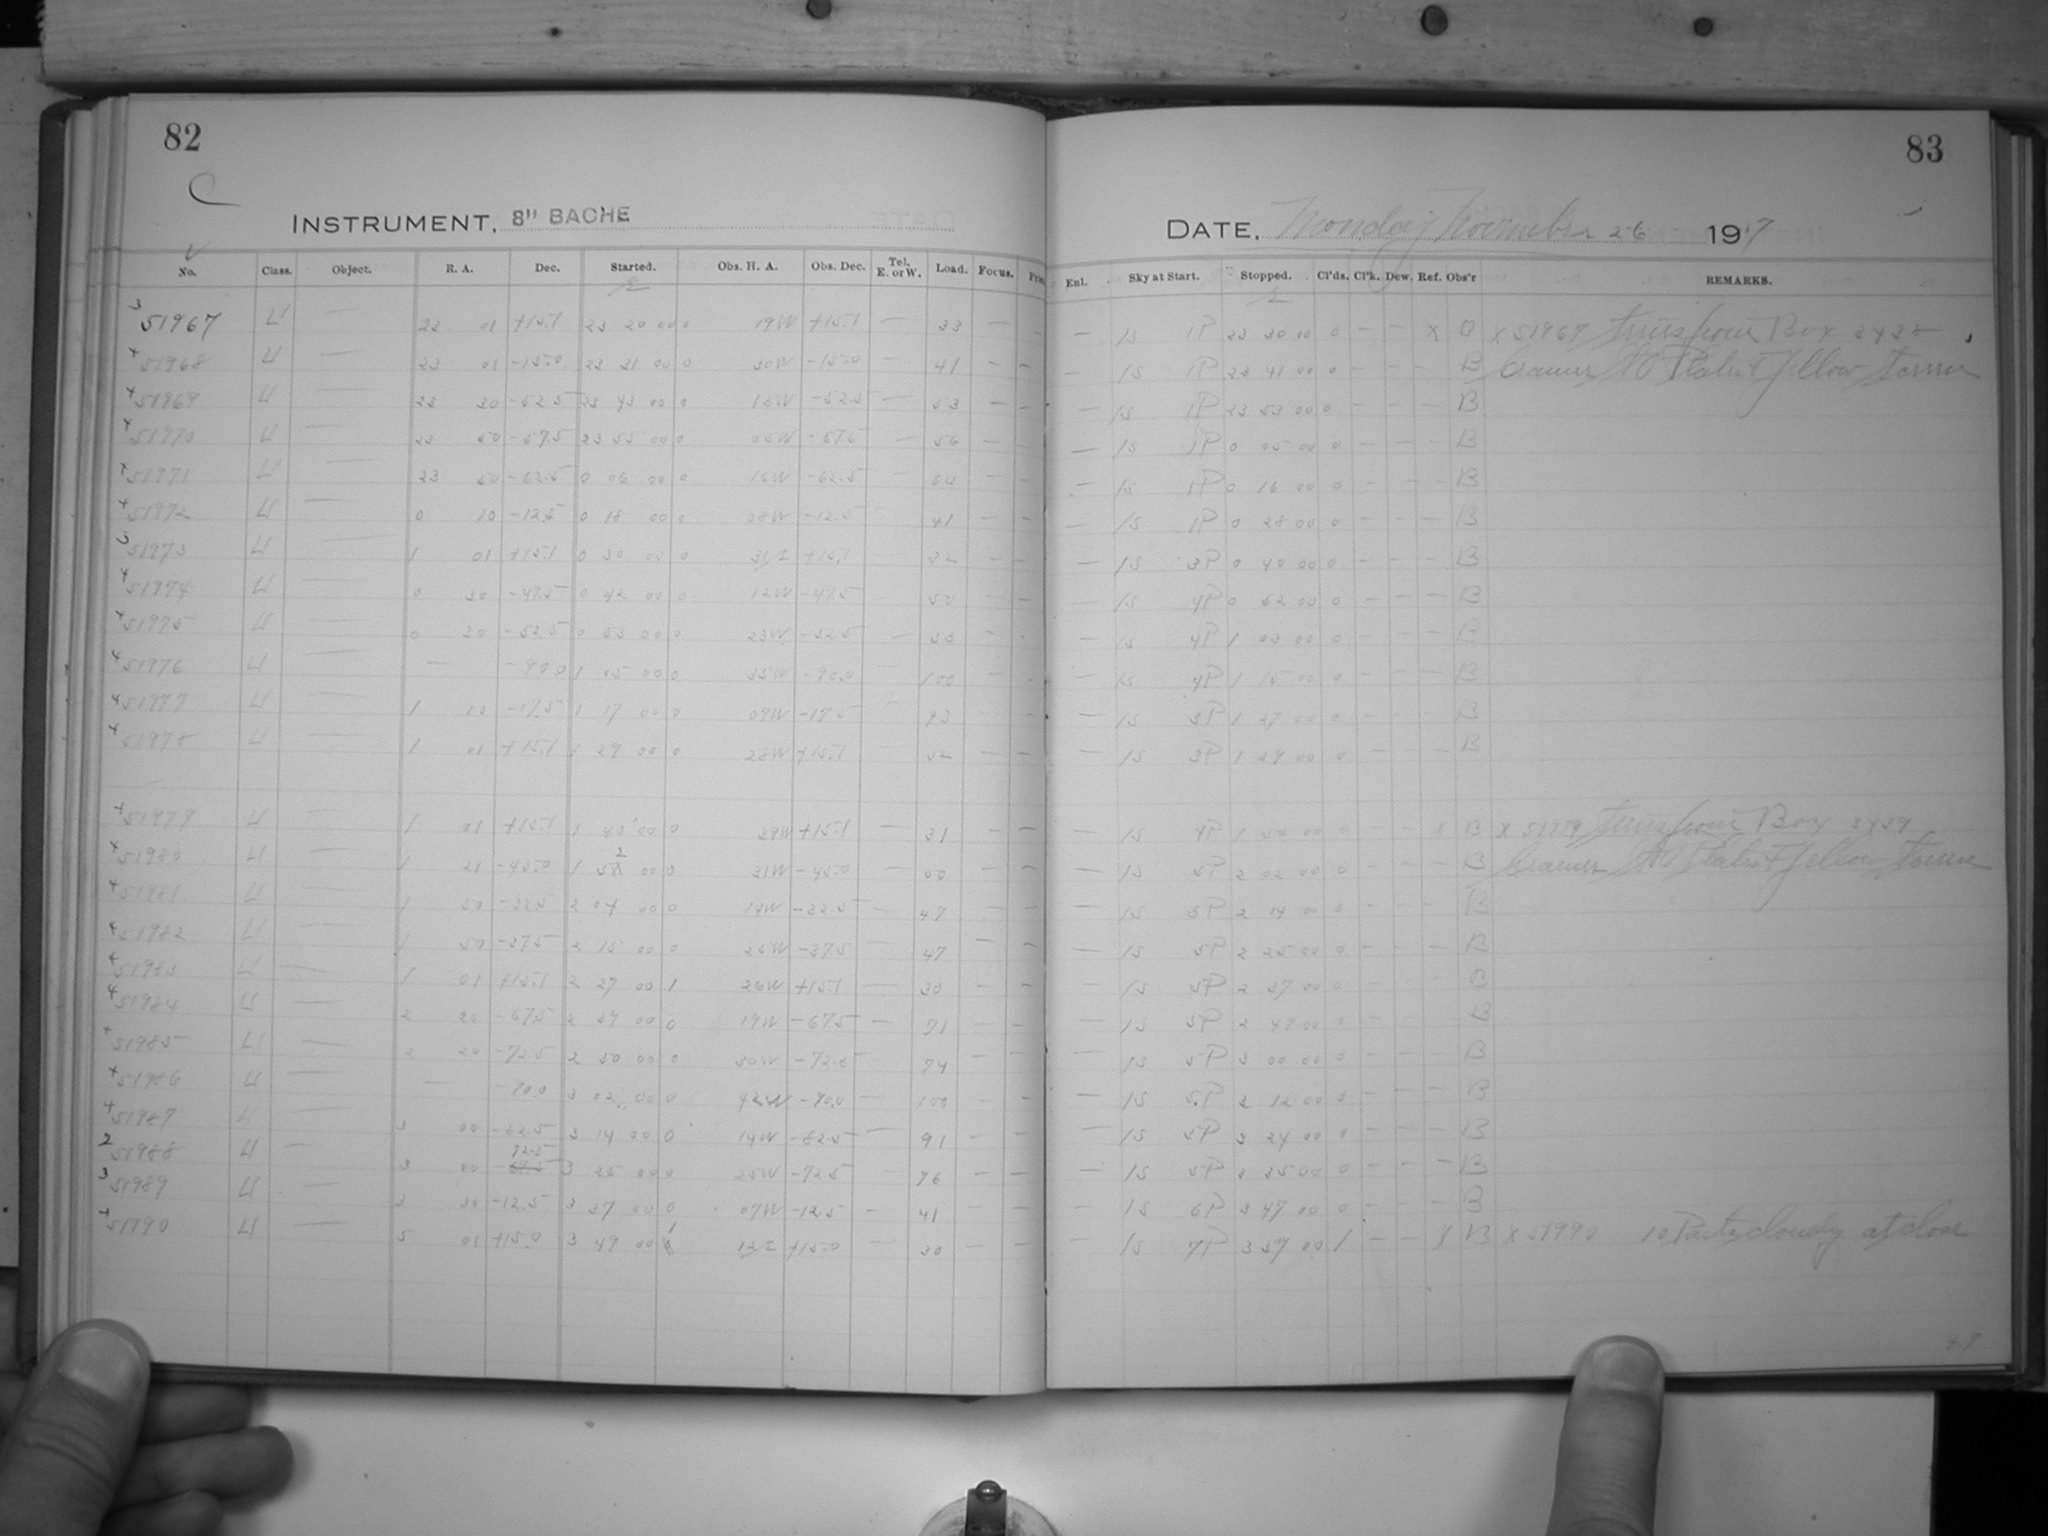 82
C
INSTRUMENT, 8" BACHE
No. Class. Object. R. A. Dec. Started. Obs. H. A. Obs. Dec. Tel. E. or W. Load. Focus.
3 51967 L1 — 23 01 +15.1 23 20 00 0 19W +15.1 — 33 — —
4 51968 L1 — 23 01 -15.0 23 31 00 0 30W -15.0 41 — —
4 51969 L1 — 23 30 -52.5 23 43 00 0 13W -52.5 — 53 — —
4 51970 L1 — 23 50 -57.5 23 55 00 0 05W -57.5 — 56 — —
4 51971 L1 — 23 50 -62.5 0 06 00 0 16W -62.5 — 64 — —
4 51972 L1 — 0 10 -12.5 0 18 00 0 08W -12.5 — 41 — —
3 51973 L1 — 1 01 +15.1 0 30 00 0 31E +15.1 32 — —
4 51974 L1 — 0 30 -47.5 0 42 00 0 12W -47.5 50 — —
4 51975 L1 — 0 30 -52.5 0 53 00 0 23W -52.5 — 53 —
4 51976 L1 — — -90.0 1 05 00 0 35W -90.0 100 — —
4 51977 L1 — 1 10 -17.5 1 17 00 0 07W -17.5 — 43 — —
4 51978 L1 — 1 01 +15.1 1 29 00 0 28W +15.1 32 — —
4 51979 L1 — 1 01 +15.1 1 40 00 0 39W +15.1 — 31 — —
4 51980 L1 — 1 21 -45.0 1 52 00 0 31W -45.0 — 50 — —
4 51981 L1 — 1 50 2 04 00 0 14W — 47 — —
4 51982 L1 — 1 50 -37.5 2 15 00 0 25W -37.5 — 47 — —
4 51983 L1 — 1 01 +15.1 2 27 00 1 26W +15.1 — 30 — —
4 51984 L1 — 2 20 -67.5 2 39 00 0 19W -67.5 — 71 — —
4 51985 L1 — 2 20 -72.5 2 50 00 0 30W -72.5 — 74 — —
4 51986 L1 — — -90.0 3 02 00 0 42W -90.0 — 100 — —
4 51987 L1 — 3 00 -82.5 3 14 00 0 14W -82.5 — 91 — —
72.5
2 51988 L1 — 3 00 3 25 00 0 25W -72.5 76 — —
3 51989 L1 — 3 30 -12.5 3 37 00 0 07W -12.5 — 41 — —
4 51990 L1 — 5 01 +15.0 3 49 00 1 12E +15.0 — 30 — —
83
DATE, Monday November 26 1917
Enl. Sky at Start. Stopped. Cl'ds. Cl'k. Dew. Ref. Obs'r REMARKS.
— 1S 1P 23 30 00 0 — — X B X 51967 from Box 3438
— 1S 1P 23 41 00 0 B Cramer Yellow
— 1S 1P 23 53 00 0 — — — B
— 1S 1P 0 05 00 0 — — — B
— 1S 1P 0 16 00 0 — — — B
— 1S 1P 0 28 00 0 — — — B
— 1S 3P 0 40 00 0 — — — B
— 1S 4P 0 52 00 0 — — — B
— 1S 4P 1 03 00 0 — — — B
— 1S 4P 1 15 00 0 — — — B
— 1S 3P 1 27 00 0 — — — B
— 1S 3P 1 39 00 0 — — — B
— 1S 4P 1 50 00 0 — — X B X 51979 from Box 3439
— 1S 5P 2 02 00 0 — — — B Cramer Yellow
— 1S 5P 2 14 00 0 — — — B
— 1S 5P 2 25 00 0 — — — B
— 1S 5P 2 37 00 0 — — — B
— 1S 5P 2 49 00 0 — — — B
— 1S 5P 3 00 00 0 — — — B
— 1S 5P 3 12 00 0 — — — B
— 1S 5P 3 24 00 0 — — — B
— 1S 5P 3 35 00 0 — — — B
— 1S 6P 3 47 00 0 — — — B
— 1S 7P 3 59 00 1 — — X B X 51990 10 Parts cloudy at close